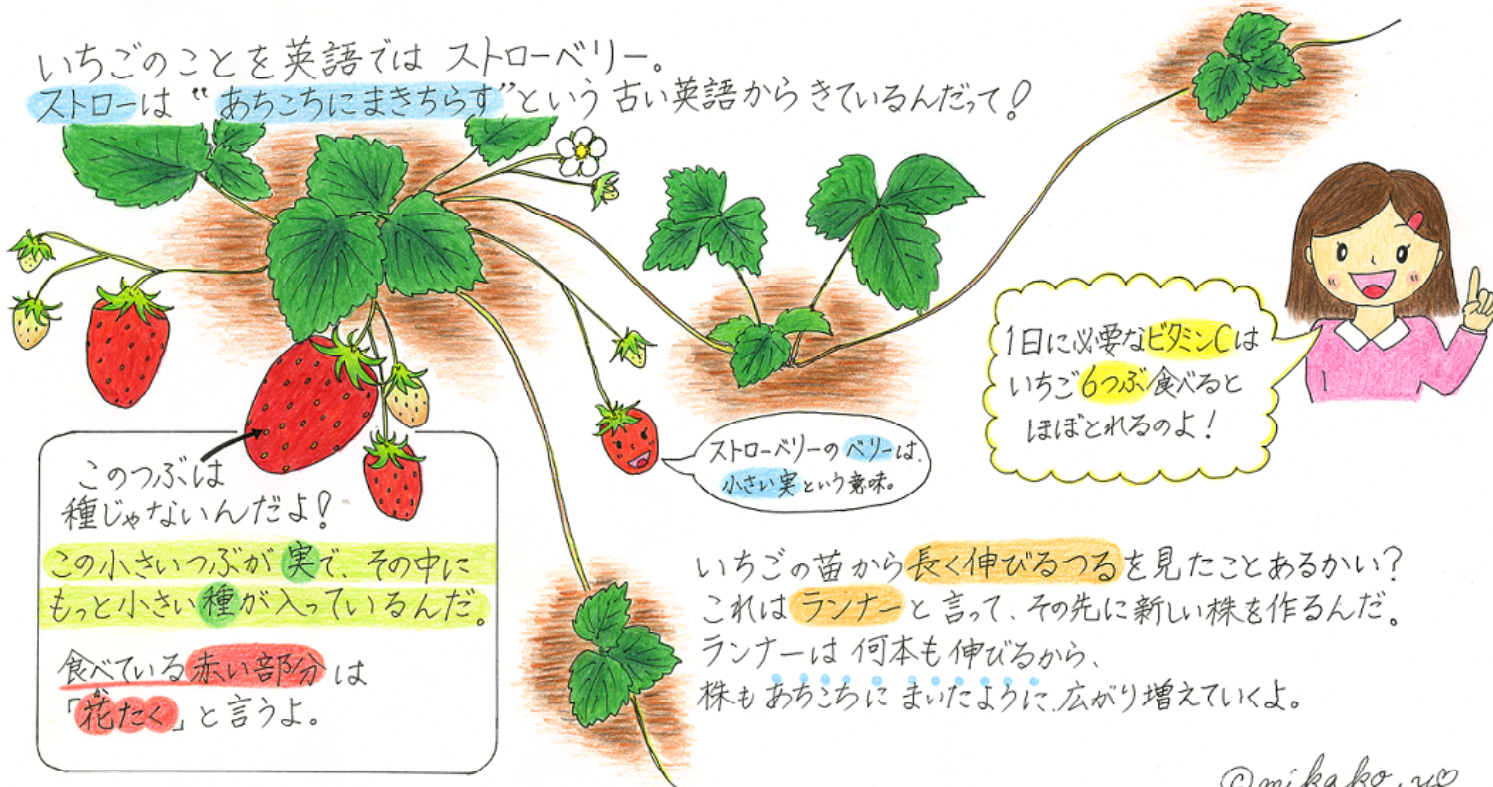 いちごのことを英語では ストローベリー。
ストローは“あちこちにまきちらす”という古い英語からきているんだって！
1日に必要なビタミンCは
いちご6つぶ食べると
ほぼとれるのよ！
ストローベリーのベリーは、
小さい実という意味。
このつぶは
種じゃないんだよ！
この小さいつぶが実で、その中に
もっと小さい種が入っているんだ。
食べている赤い部分は
か
「花たく」と言うよ。
いちごの苗から長く伸びるつるを見たことあるかい？
これはランナーと言って、その先に新しい株を作るんだ。
ランナーは何本も伸びるから、
株もあちこちにまいたように、広がり増えていくよ。
©mikako.y♡